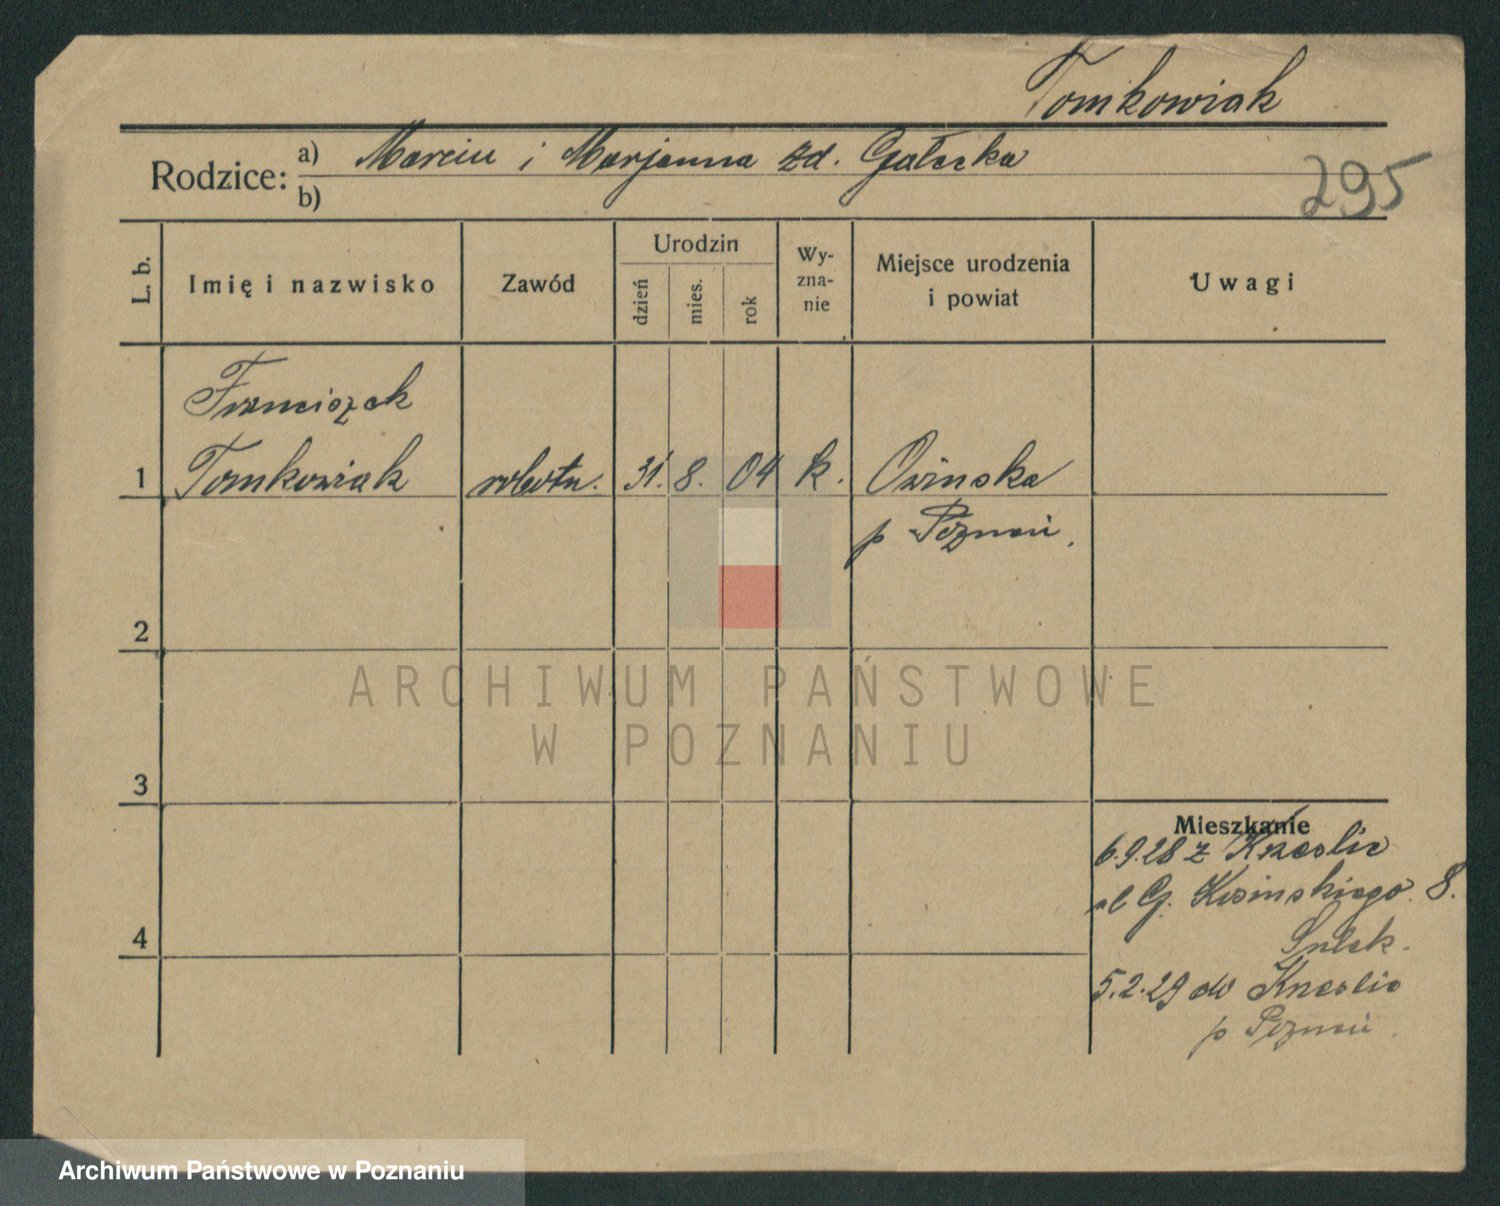 Tomkowiak
Rodzice: a) Marcin i Marjanna zd. Gałecka
b)
295
L. b.
Imię i nazwisko
Zawód
Urodzin
dzień
mies.
rok
Wy-
zna-
nie
Miejsce urodzenia
i powiat
Uwagi
Franciszek
1 Tomkowiak robotn. 31. 8. 04 k. Owinska
p Poznań.
2
3
4
Mieszkanie
6.9.28 z
ul G. 8.
5.2.29 do
p Poznań.
ARCHIWUM PAŃSTWOWE
W POZNANIU
Archiwum Państwowe w Poznaniu